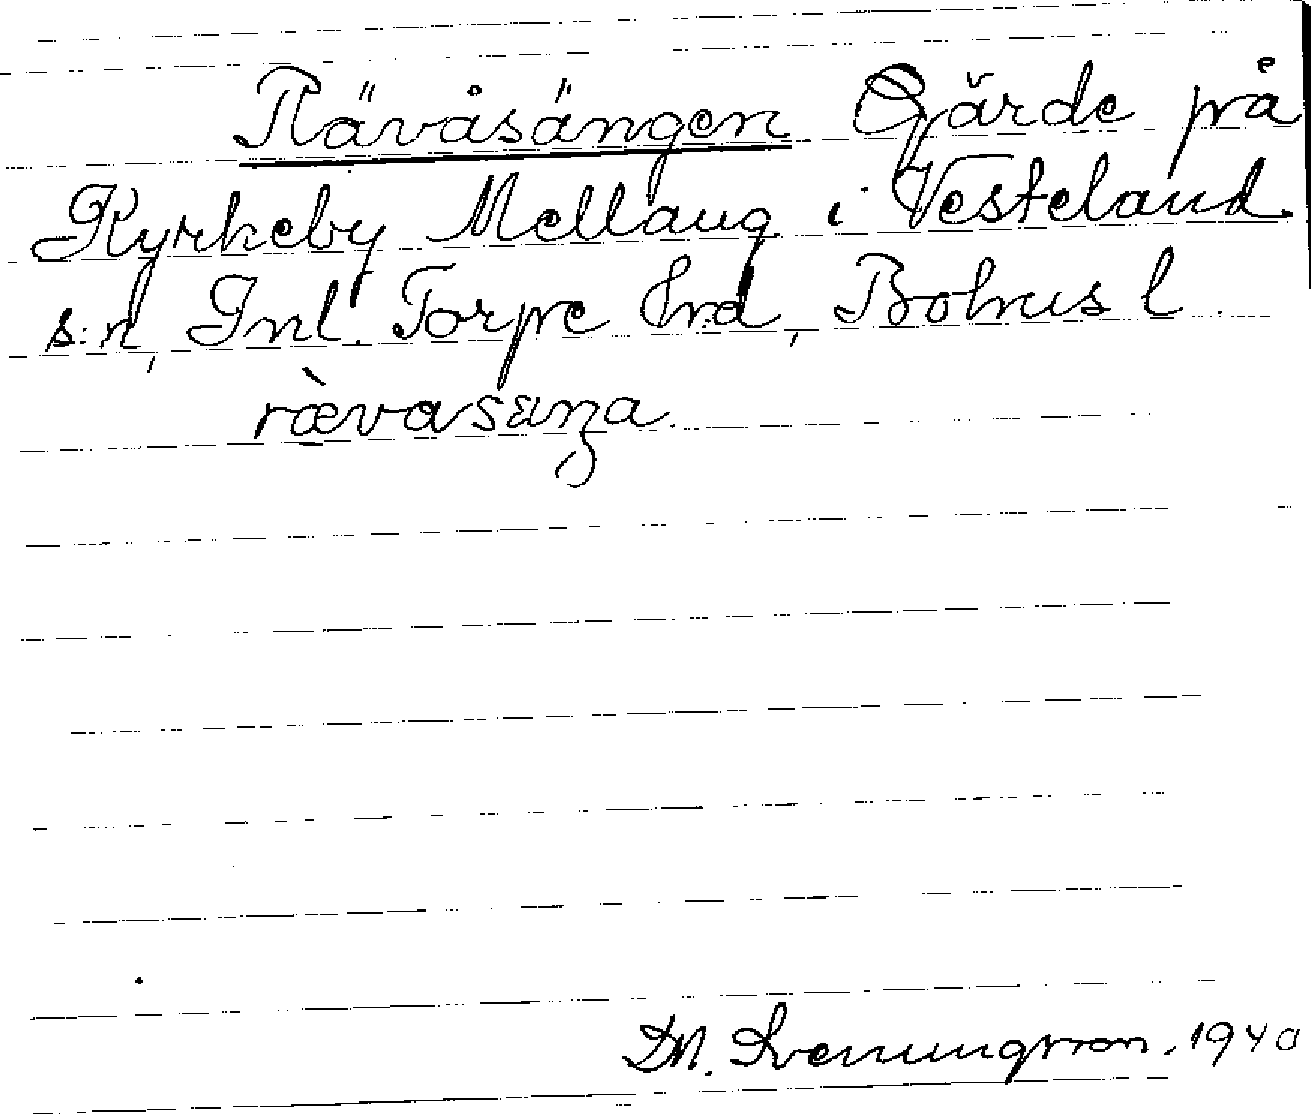 Rävåsängen Gärde på
Kyrkeby Mellang i Vesteland
s:n, Inl. Torpe hrd, Bohus l.
rævasæŋa.
M. Svenungsson. 1940